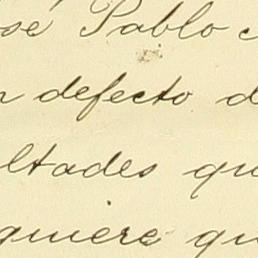 sé Pablo
n defecto d
ltades qu
quiere qu